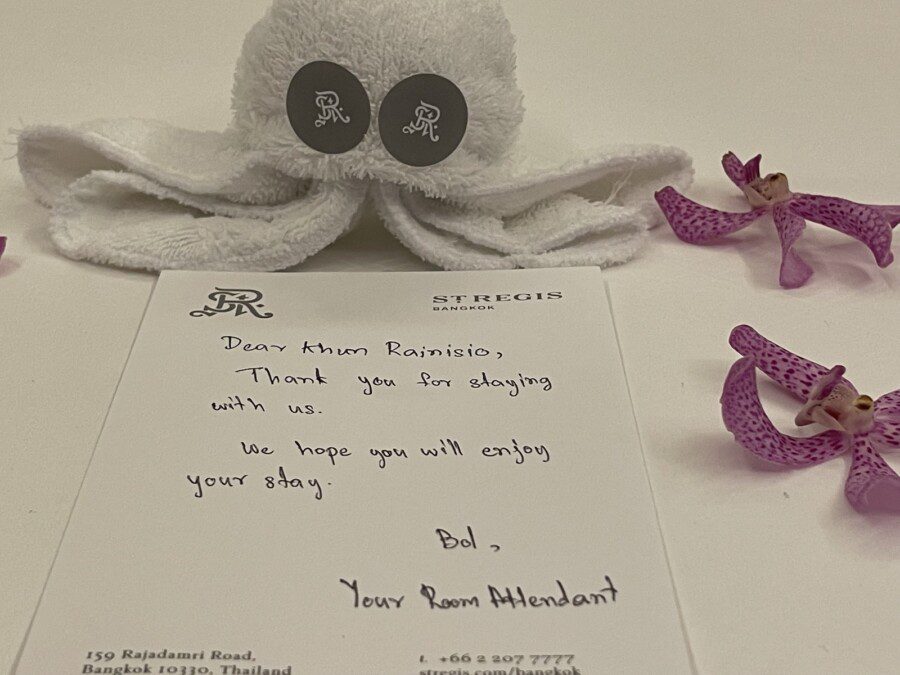 ST REGIS
BANGKOK
Dear Khun Rainisio,
Thank you for staying
with us.
We hope you will enjoy
your stay.
Bol,
Your Room Attendant
159 Rajadamri Road,
Bangkok 10330, Thailand
t. +66 2 207 7777
stregis.com/bangkok